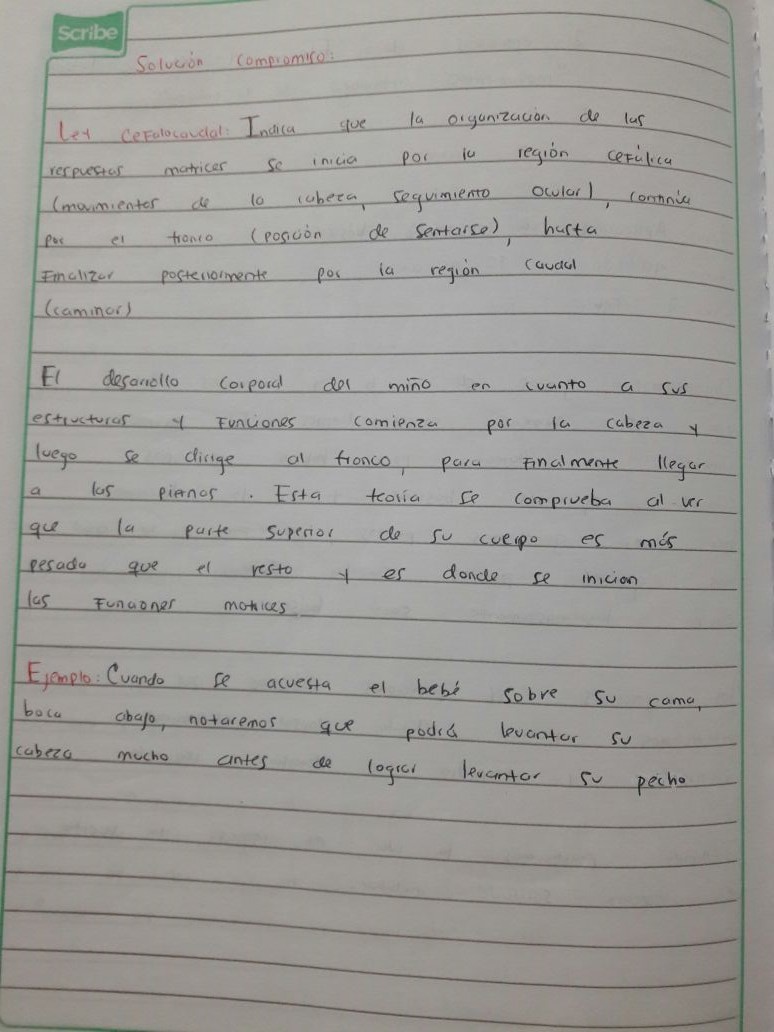 Scribe
Solución Compromiso:
Ley Cefalocaudal: Indica que la organización de las
respuestas motrices se inicia por la región cefálica
(movimientos de la cabeza, seguimiento ocular), continúa
por el tronco (posición de sentarse), hasta
Finalizar posteriormente por la región caudal
(caminar)
El desarrollo corporal del miño en cuanto a sus
estructuras y Funciones comienza por la cabeza y
luego se dirige al tronco, para Finalmente llegar
a las piernas. Esta teoría se comprueba al ver
que la parte superior de su cuerpo es más
pesada que el resto y es donde se inician
las Funciones motrices
Ejemplo: Cuando se acuesta el bebé sobre su cama,
boca abajo, notaremos que podrá levantar su
cabeza mucho antes de lograr levantar su pecho